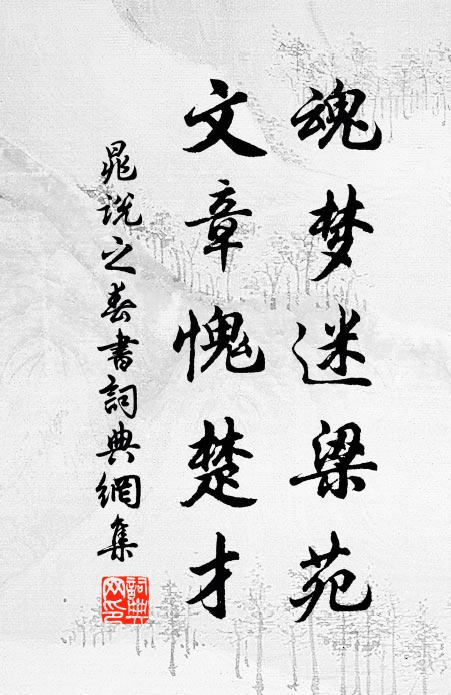 魂梦迷梁苑
文章愧楚才
晁说之春书詞典網集
詞典网印